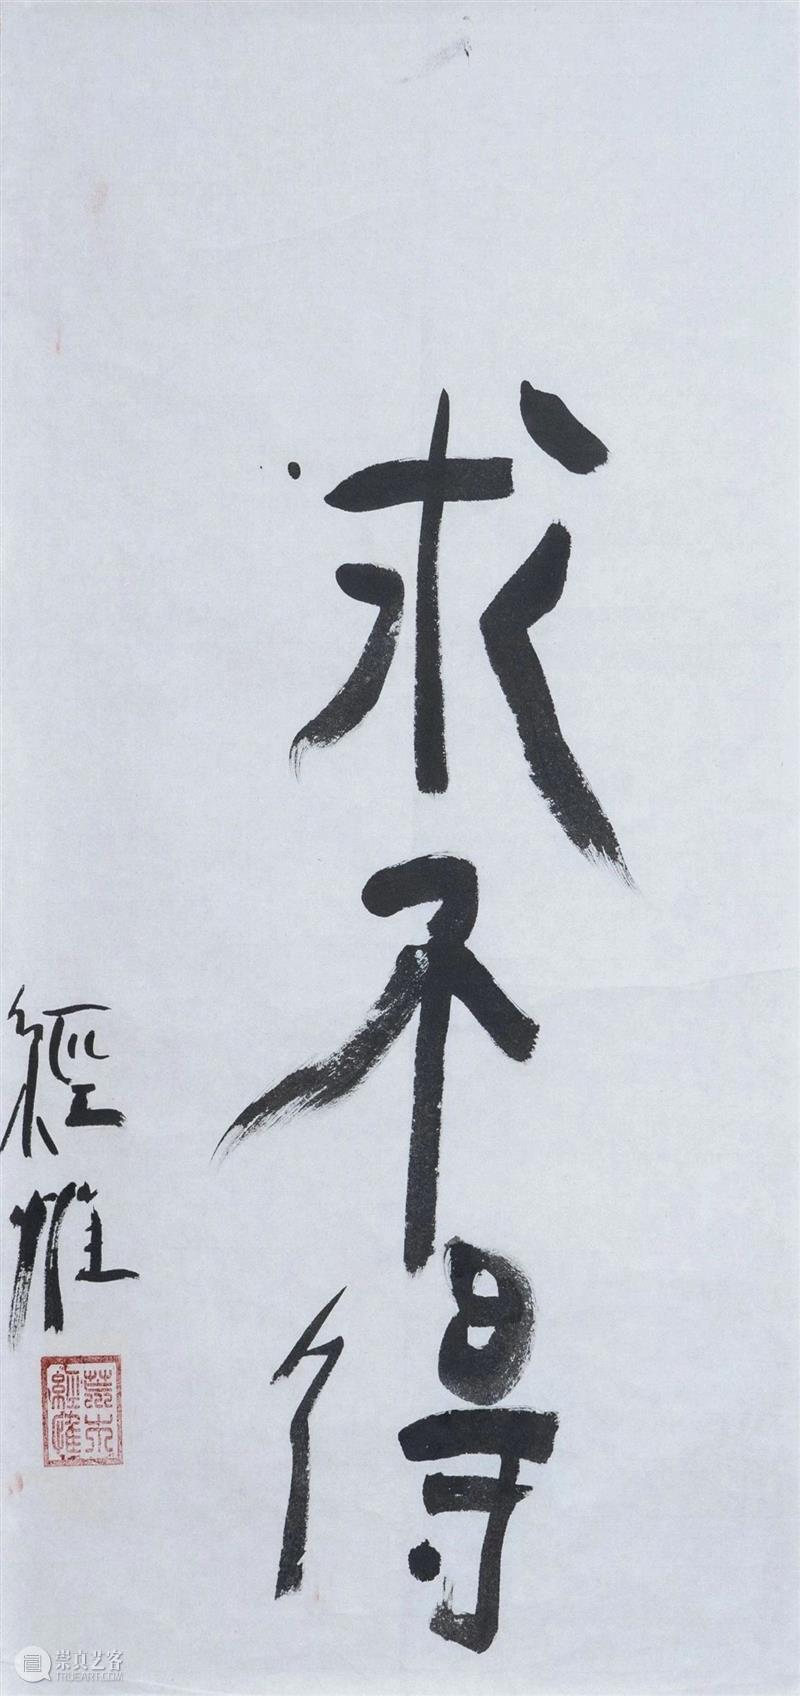 求不得
經惟
崇真艺客
TRUEART.COM